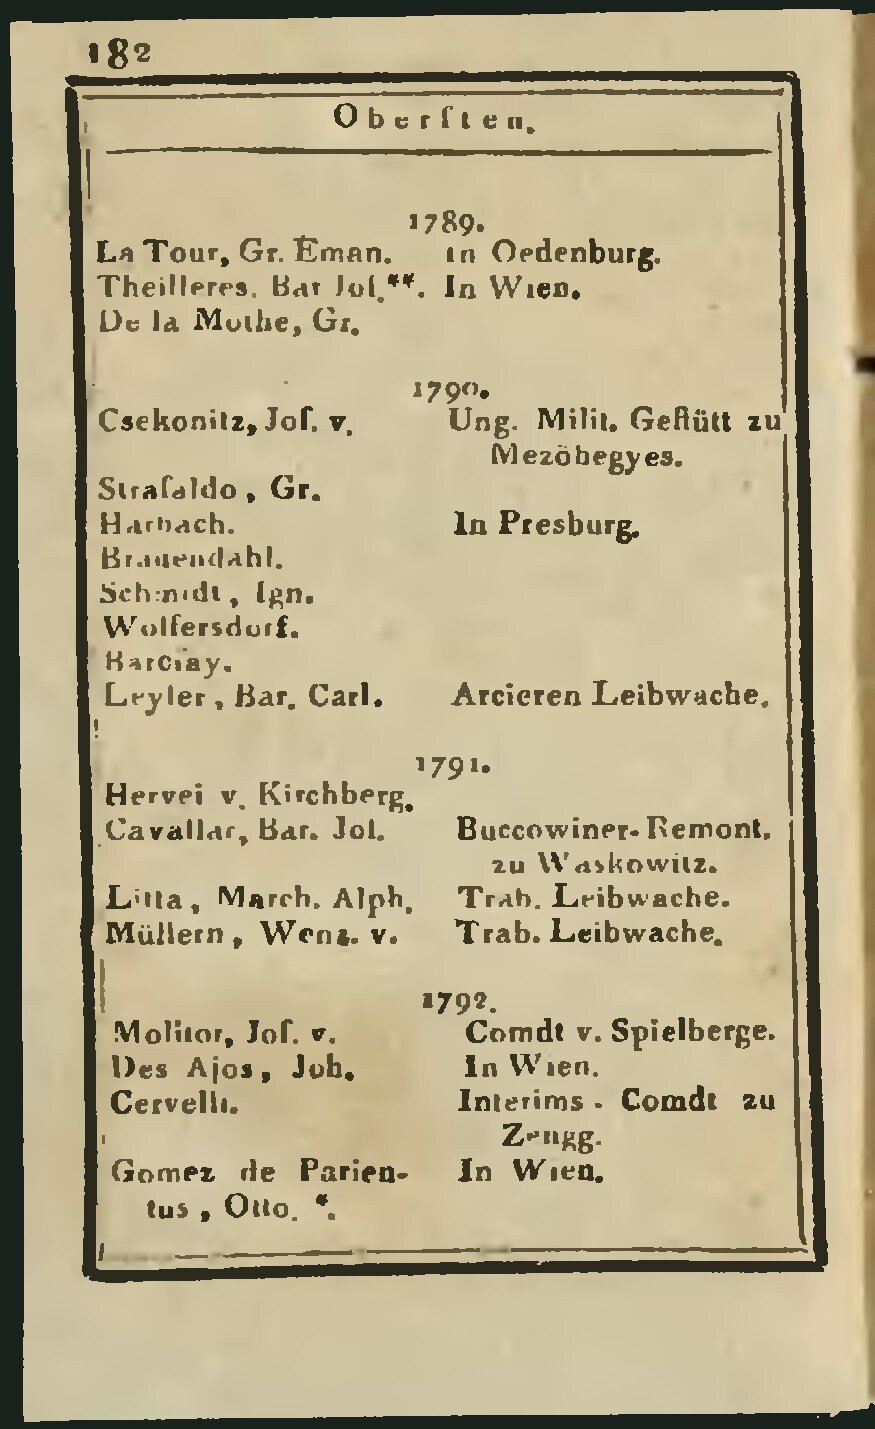 182
Oberſten.
1789.
La Tour, Gr. Eman. in Oedenburg.
Theilleres. Bar Joſ.**. In Wien.
De la Mothe, Gr.
1790.
Csekonitz, Joſ. v. Ung. Milit. Geſtütt zu
Mezöhegyes.
Straſaldo, Gr.
Harbach. In Presburg.
Brauendahl.
Schmidt, Ign.
Wolfersdorf.
Barciay.
Leyler, Bar. Carl. Arcieren Leibwache.
1791.
Hervei v. Kirchberg.
Cavallar, Bar. Joſ. Buccowiner-Remont.
zu Waskowitz.
Litta, March. Alph. Trab. Leibwache.
Müllern, Wenz. v. Trab. Leibwache.
1792.
Molitor, Joſ. v. Comdt v. Spielberge.
Des Ajos, Joh. In Wien.
Cervelli. Interims - Comdt zu
Zengg.
Gomez de Parien- In Wien.
tus, Otto. *.